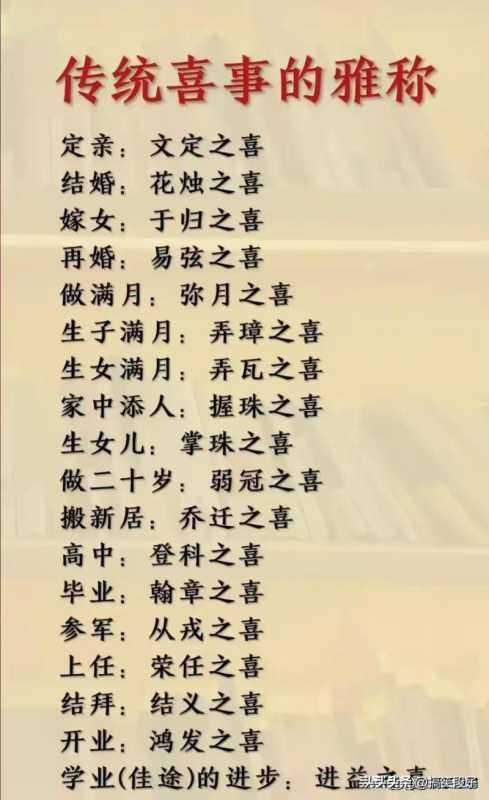 传统喜事的雅称
定亲：文定之喜
结婚：花烛之喜
嫁女：于归之喜
再婚：易弦之喜
做满月：弥月之喜
生子满月：弄璋之喜
生女满月：弄瓦之喜
家中添人：握珠之喜
生女儿：掌珠之喜
做二十岁：弱冠之喜
搬新居：乔迁之喜
高中：登科之喜
毕业：翰章之喜
参军：从戎之喜
上任：荣任之喜
结拜：结义之喜
开业：鸿发之喜
学业(佳途)的进步：进益之喜
头条@搞笑段子